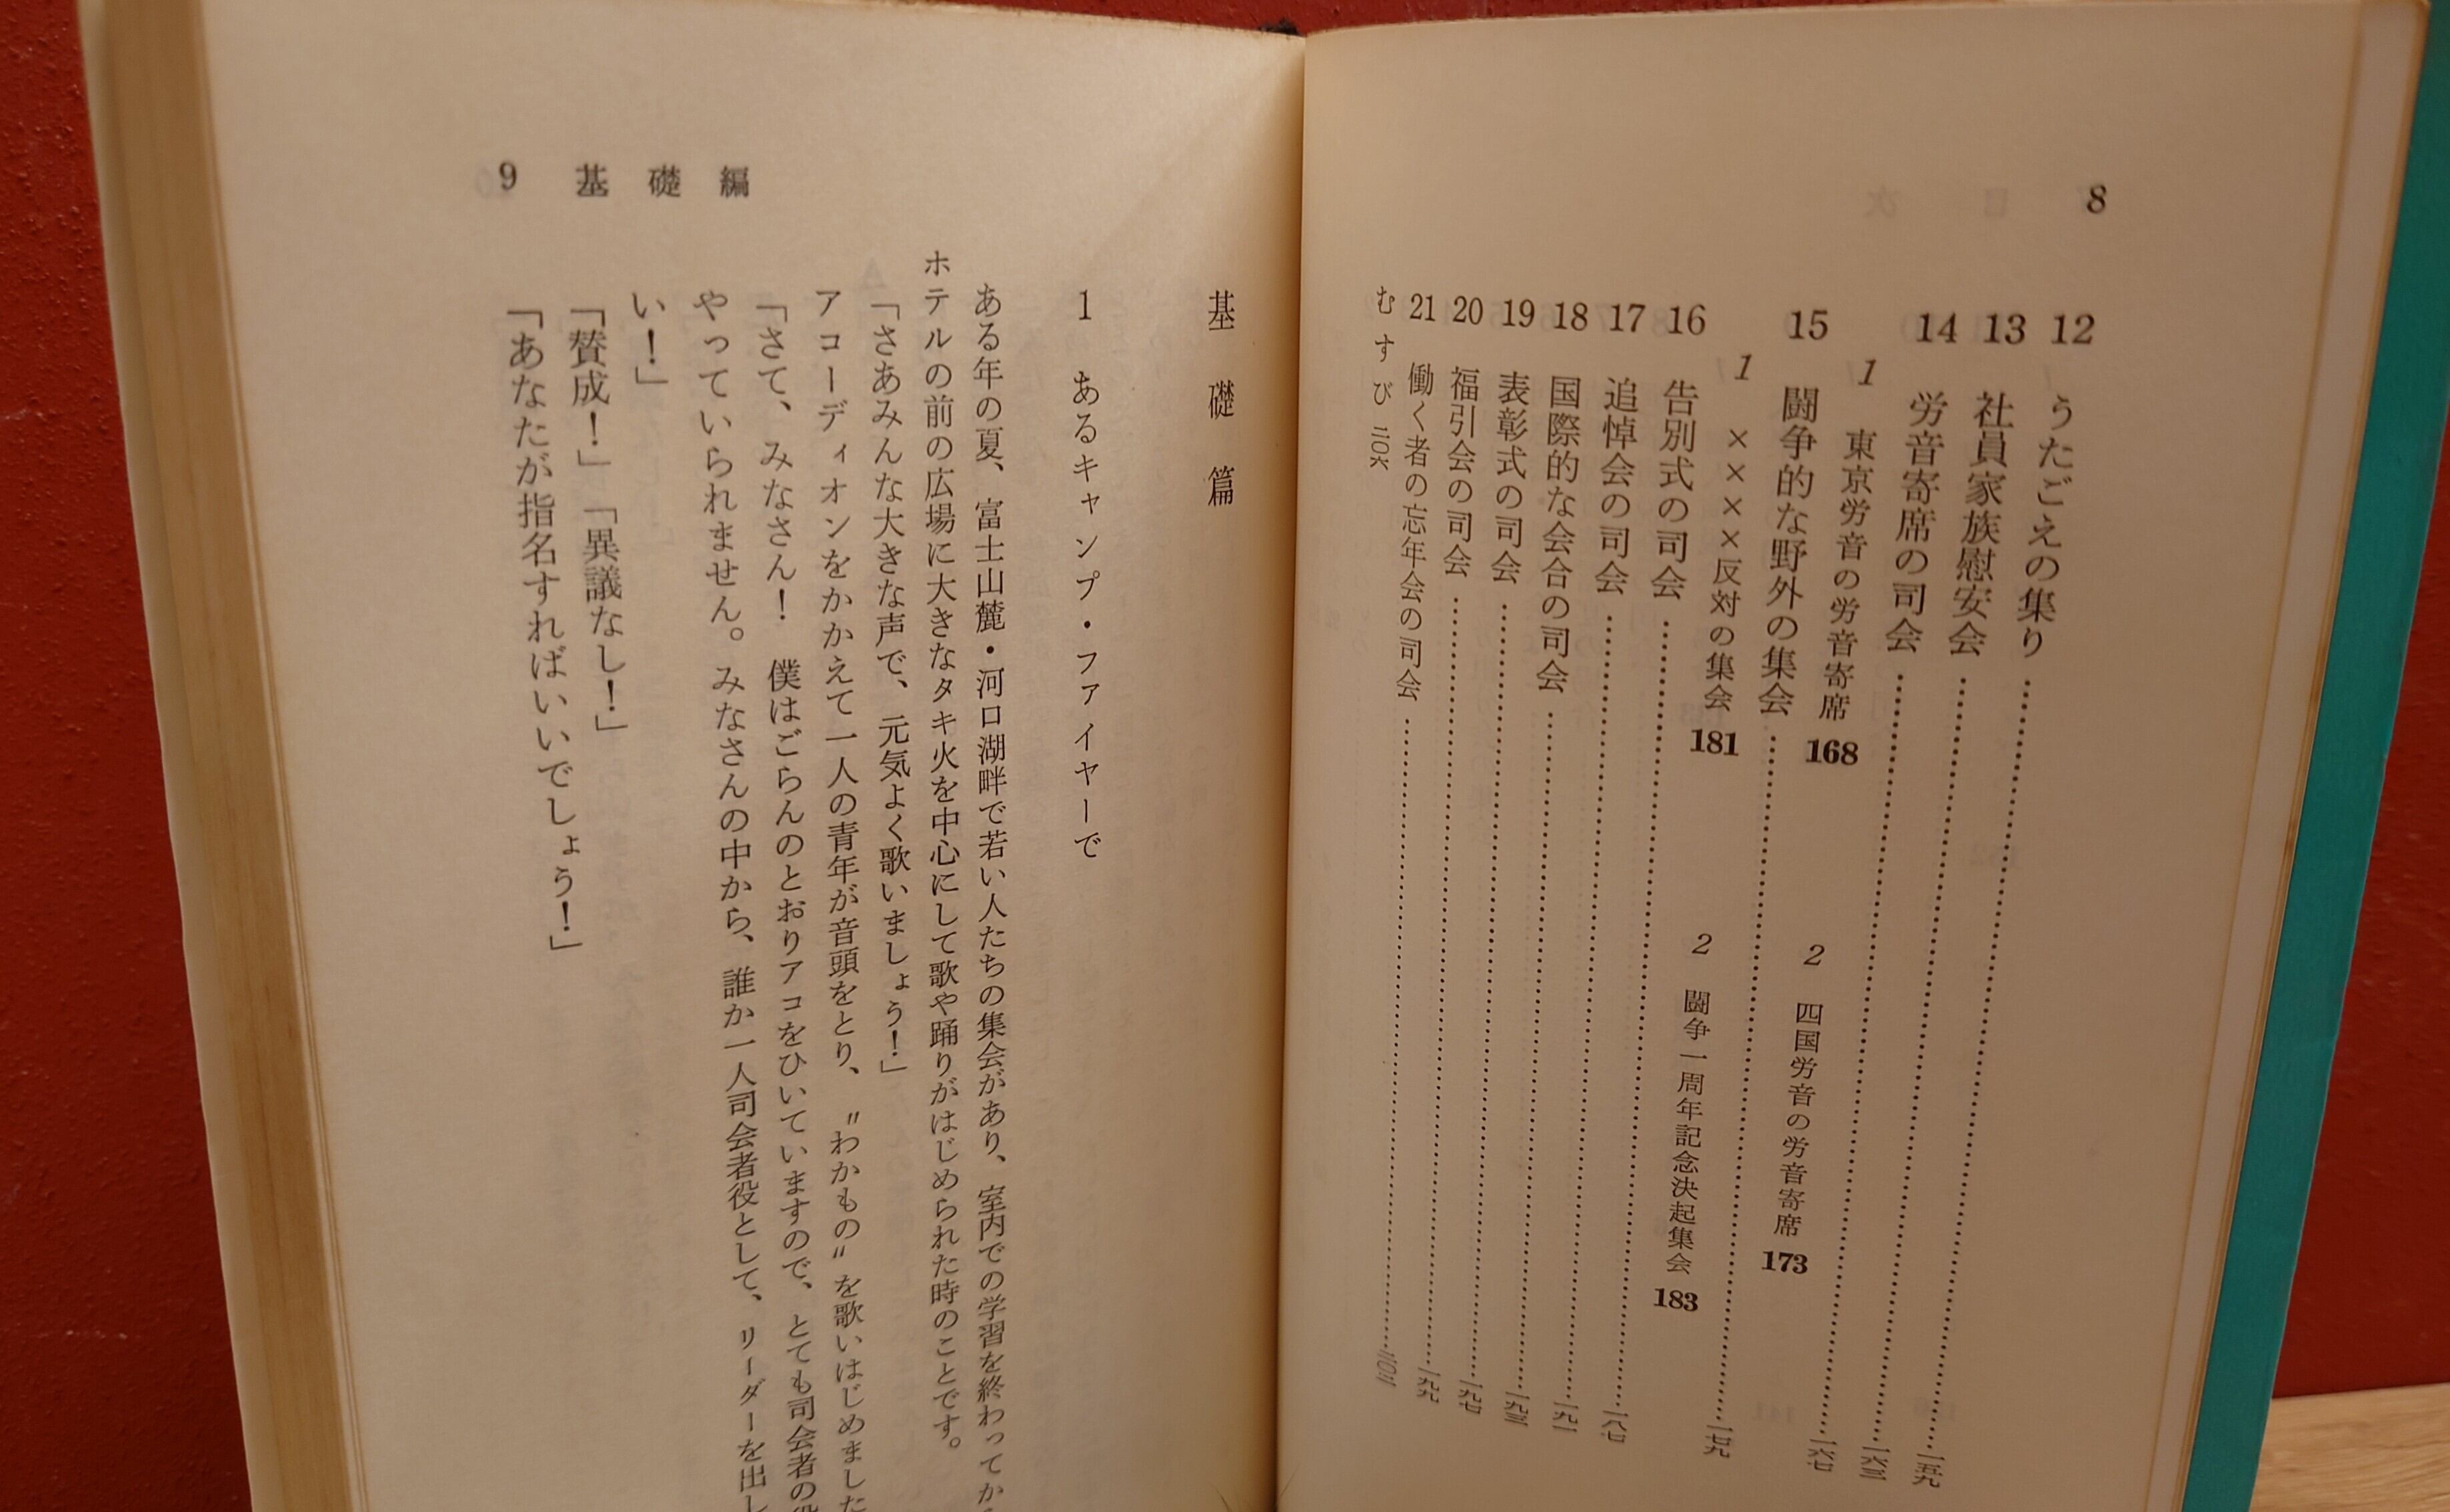 8
12 うたごえの集り……一五九
13 社員家族慰安会……一六三
14 労音寄席の司会……一六七
1 東京労音の労音寄席 168 2 四国労音の労音寄席 173
15 闘争的な野外の集会……一七九
1 ××××反対の集会 181 2 闘争一周年記念決起集会 183
16 告別式の司会……一八七
17 追悼会の司会……一九一
18 国際的な会合の司会……一九三
19 表彰式の司会……一九七
20 福引会の司会……一九九
21 働く者の忘年会の司会……二〇三
むすび 二〇六
9 基礎編
基礎篇
1 あるキャンプ・ファイヤーで
ある年の夏、富士山麓・河口湖畔で若い人たちの集会があり、室内での学習を終わってから
ホテルの前の広場に大きなタキ火を中心にして歌や踊りがはじめられた時のことです。
「さあみんな大きな声で、元気よく歌いましょう!」
アコーディオンをかかえて一人の青年が音頭をとり、〝わかもの〟を歌いはじめました
「さて、みなさん! 僕はごらんのとおりアコをひいていますので、とても司会者の役
やっていられません。みなさんの中から、誰か一人司会者役として、リーダーを出し
い!」
「賛成!」「異議なし!」
「あなたが指名すればいいでしょう!」